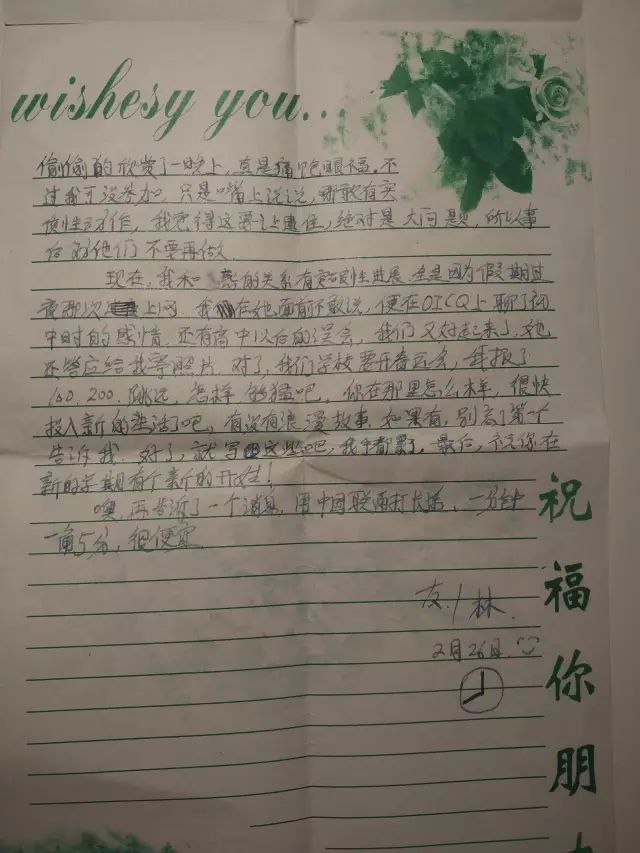 wishesy you...
偷偷的欣赏了一晚上，真是痛饱眼福。不
过我可没参加，只是嘴上说说，哪敢有实
质性动作，我觉得这要让逮住，绝对是大问题，所以事
后劝他们不要再做
现在，我和 的关系有突破性进展，全是因为假期过
我在她面前不敢说，便在OICQ上聊了初
中时的感情，还有高中以后的误会，我们又好起来了，她
还答应给我寄照片，对了，我们学校要开春运会，我报了
100，200，跳远，怎样，够猛吧，你在那里怎么样，很快
投入新的生活了吧，有没有浪漫故事，如果有，别忘了第一个
告诉我，好了，就写这些吧，我手都累了，最后，祝你在
新的学期有个新的开始！
噢，再告诉了一个消息，用中国联通打长话，一分钟
一角5分，很便宜
友：林
2月26日
祝福你朋